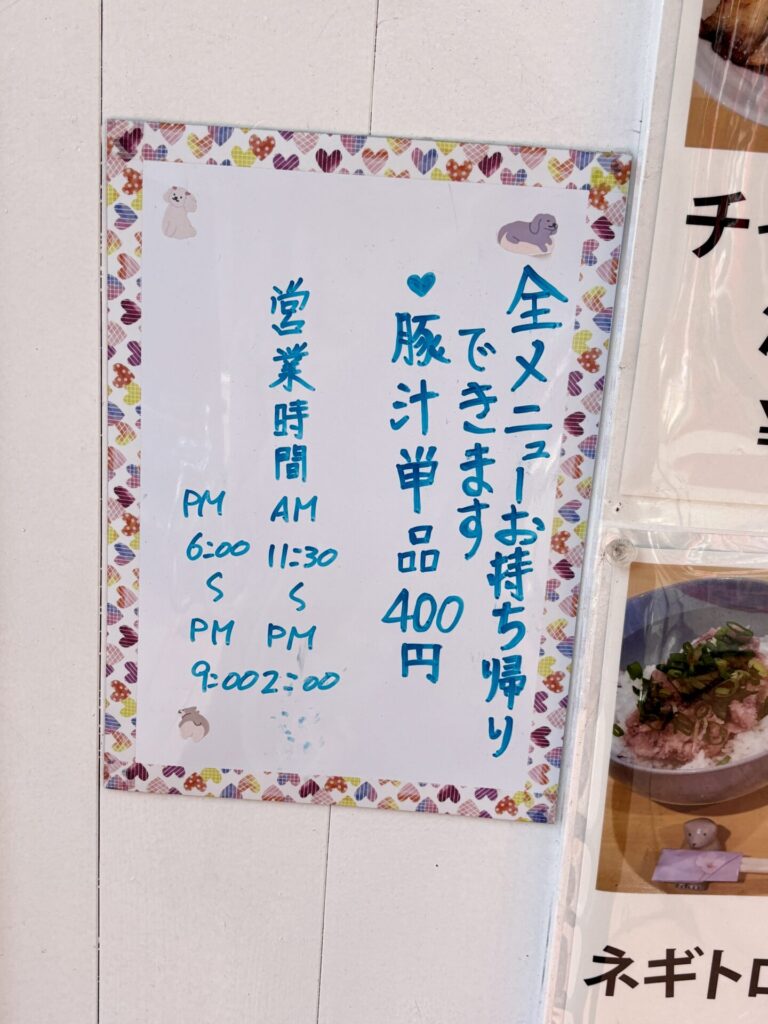 全メニューお持ち帰り
できます
♥豚汁単品400円
営業時間
AM
11:30
〜
PM
2:00
PM
6:00
〜
PM
9:00
チ
ネギトロ